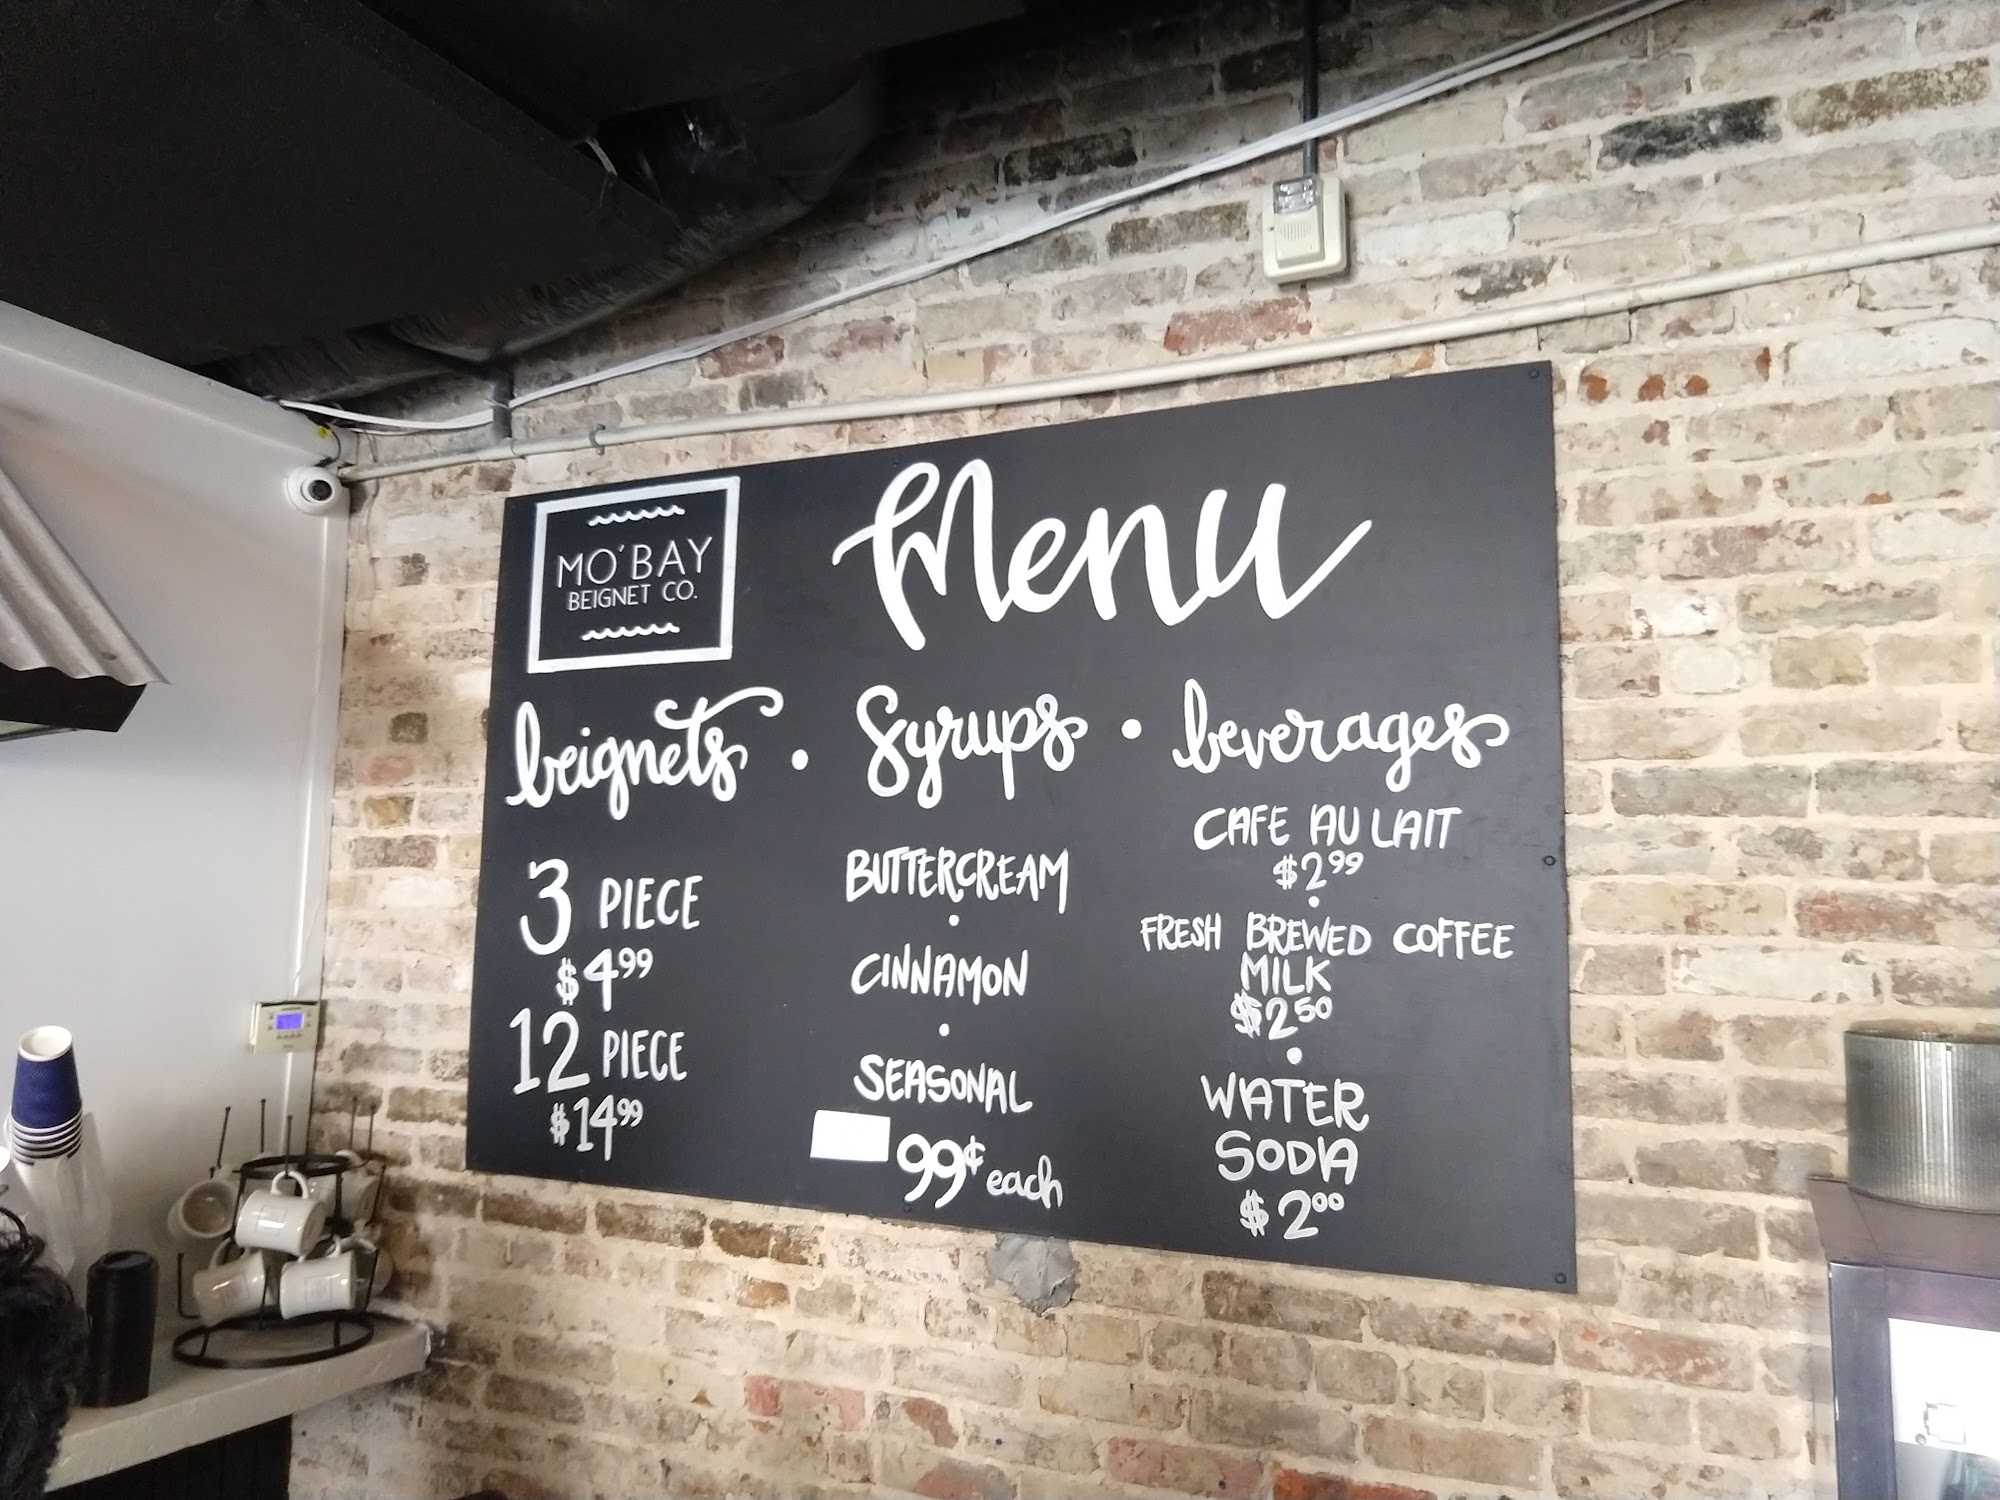 MO'BAY
BEIGNET CO.
Menu
beignets • syrups • beverages
3 PIECE
$4.99
12 PIECE
$14.99
BUTTERCREAM
•
CINNAMON
•
SEASONAL
99¢ each
CAFE AU LAIT
$2.99
•
FRESH BREWED COFFEE
MILK
$2.50
•
WATER
SODA
$2.00